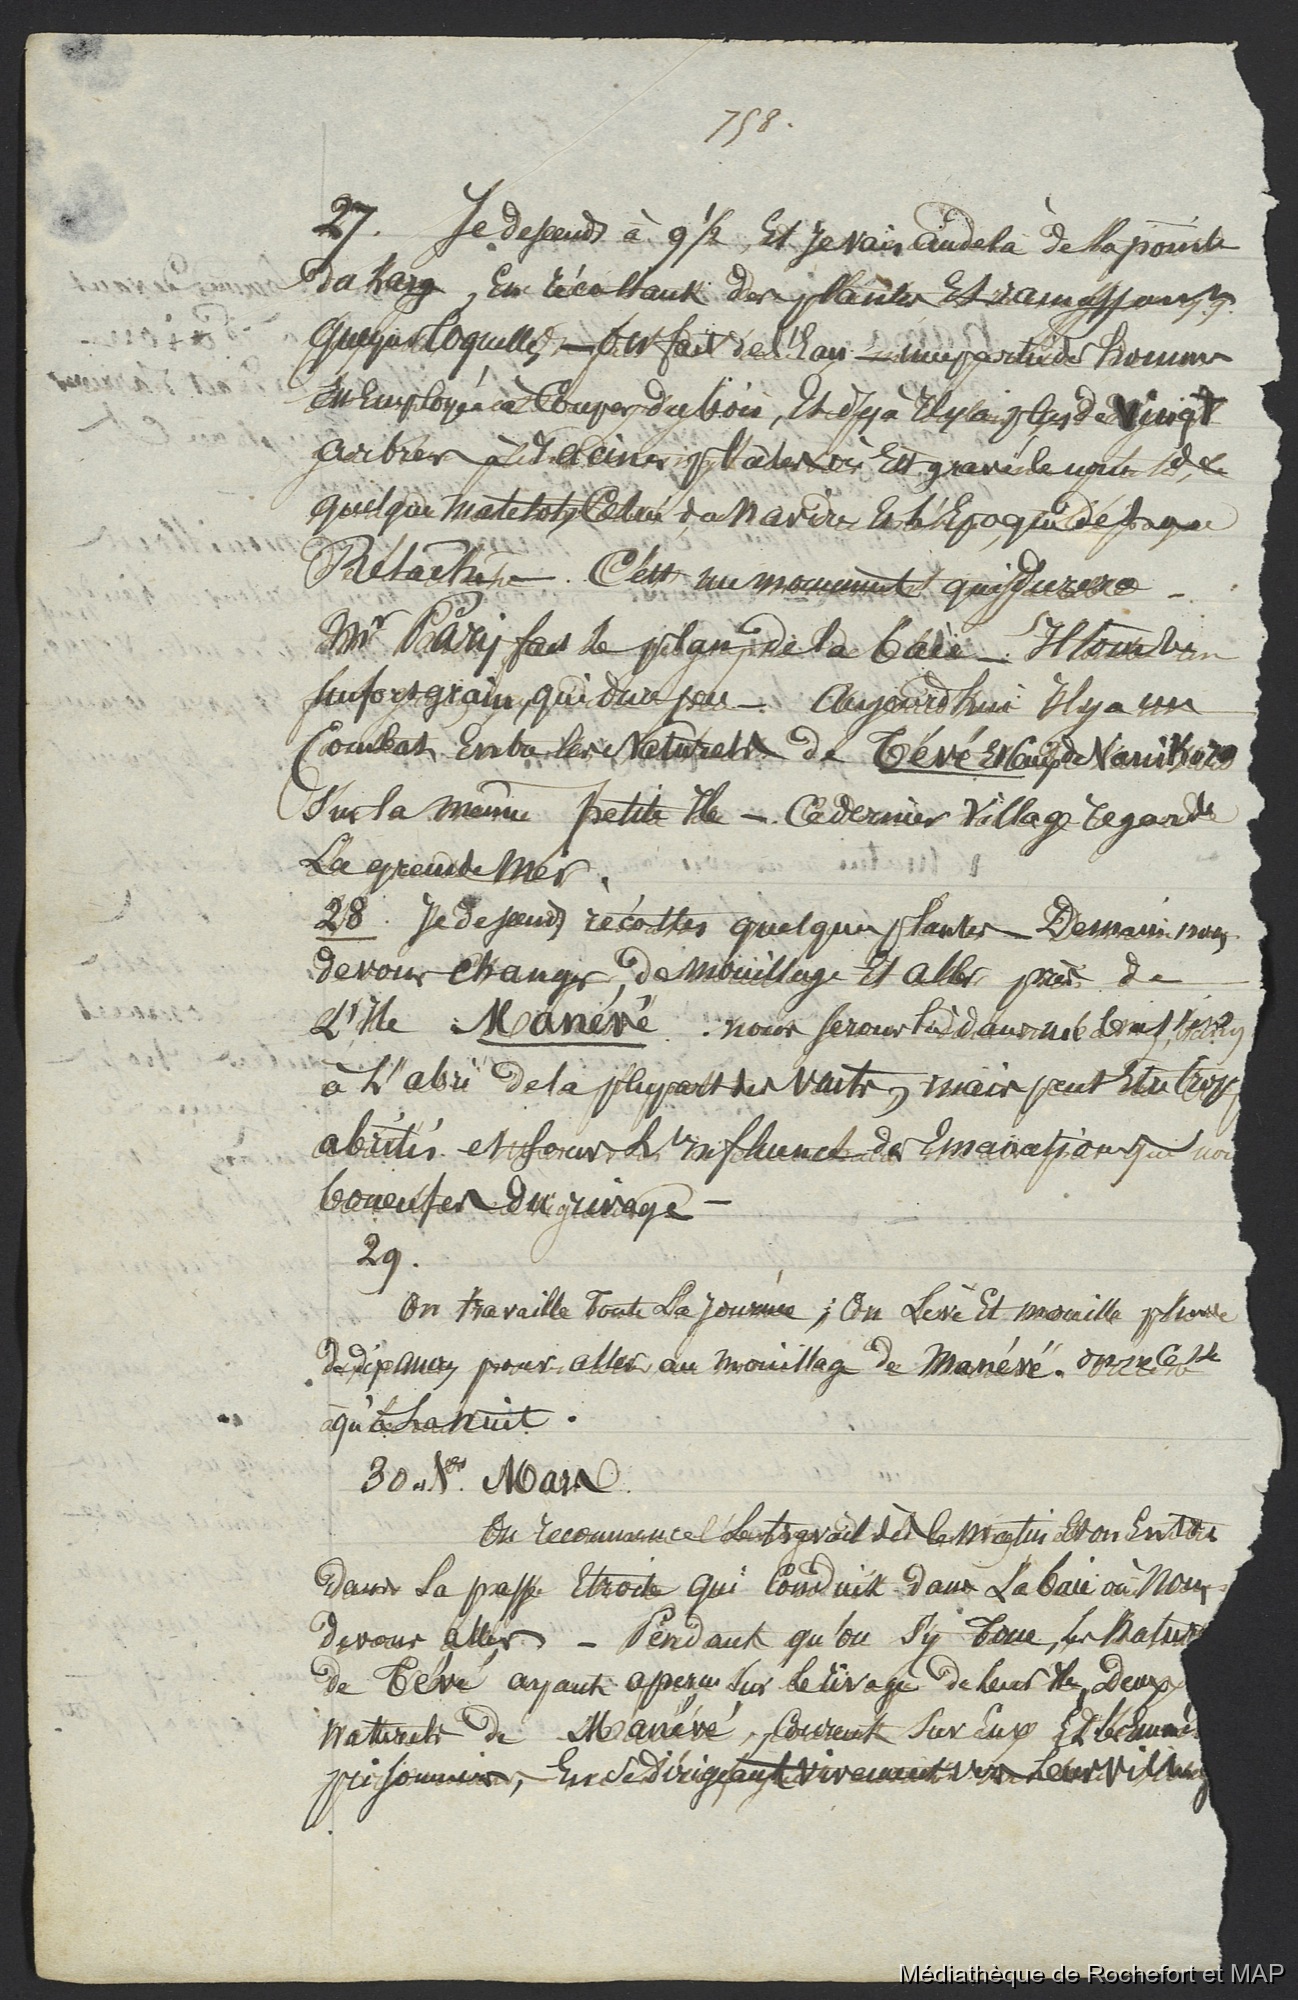 758.
27. Je descends à 9 1/2 Et Je vais audelà de la pointe
du harg, En récoltant des plantes Et ramassant
quelques Coquilles, — on fait de l'Eau — une partie des hommes
Est Employée à Couper du bois, Et déja Il y a plus de Vingt
arbres à racines plates où Est gravé le nom de
quelques matelots, Celui du Navire Et l'Epoque de sa
Relache —. C'est un monument qui durera —
Mr Pâris fait le plan de la baie —. Il tombe un
un fort grain, qui dure peu —. Aujourd'hui Il y a un
Combat Entre les Naturels de Tévé Et Ceux de Vanikoro
Sur la même petite Ile —. Ce dernier Village regarde
La grande Mer.
28. Je descends récolter quelques plantes — Demain nous
devons changer de mouillage Et aller près de
L'Ile Manévé. nous serons là dans
à L'abri de la plupart des Vents, mais peut Etre trop
abrités et sous L'influence des Emanations qui nou
bouenfer du rivage —
29.
On travaille Toute La journée ; On Lève Et mouille plus
de dix ancres pour aller au mouillage de Manévé. on ne Cesse
qu'à La Nuit.
30. Mars.
On recommence Le travail dès le matin Et on Entre
dans La passe Etroite qui Conduit dans La baie où Nous
devons aller — Pendant qu'on S'y Toue, les Natur
de Tévé ayant aperçu Sur le rivage de leur Ile, Deux
naturels de Manévé, Courent Sur Eux Et les
prisonniers, En Se dirigeant vivement vers Leur Village
Médiathèque de Rochefort et MAP